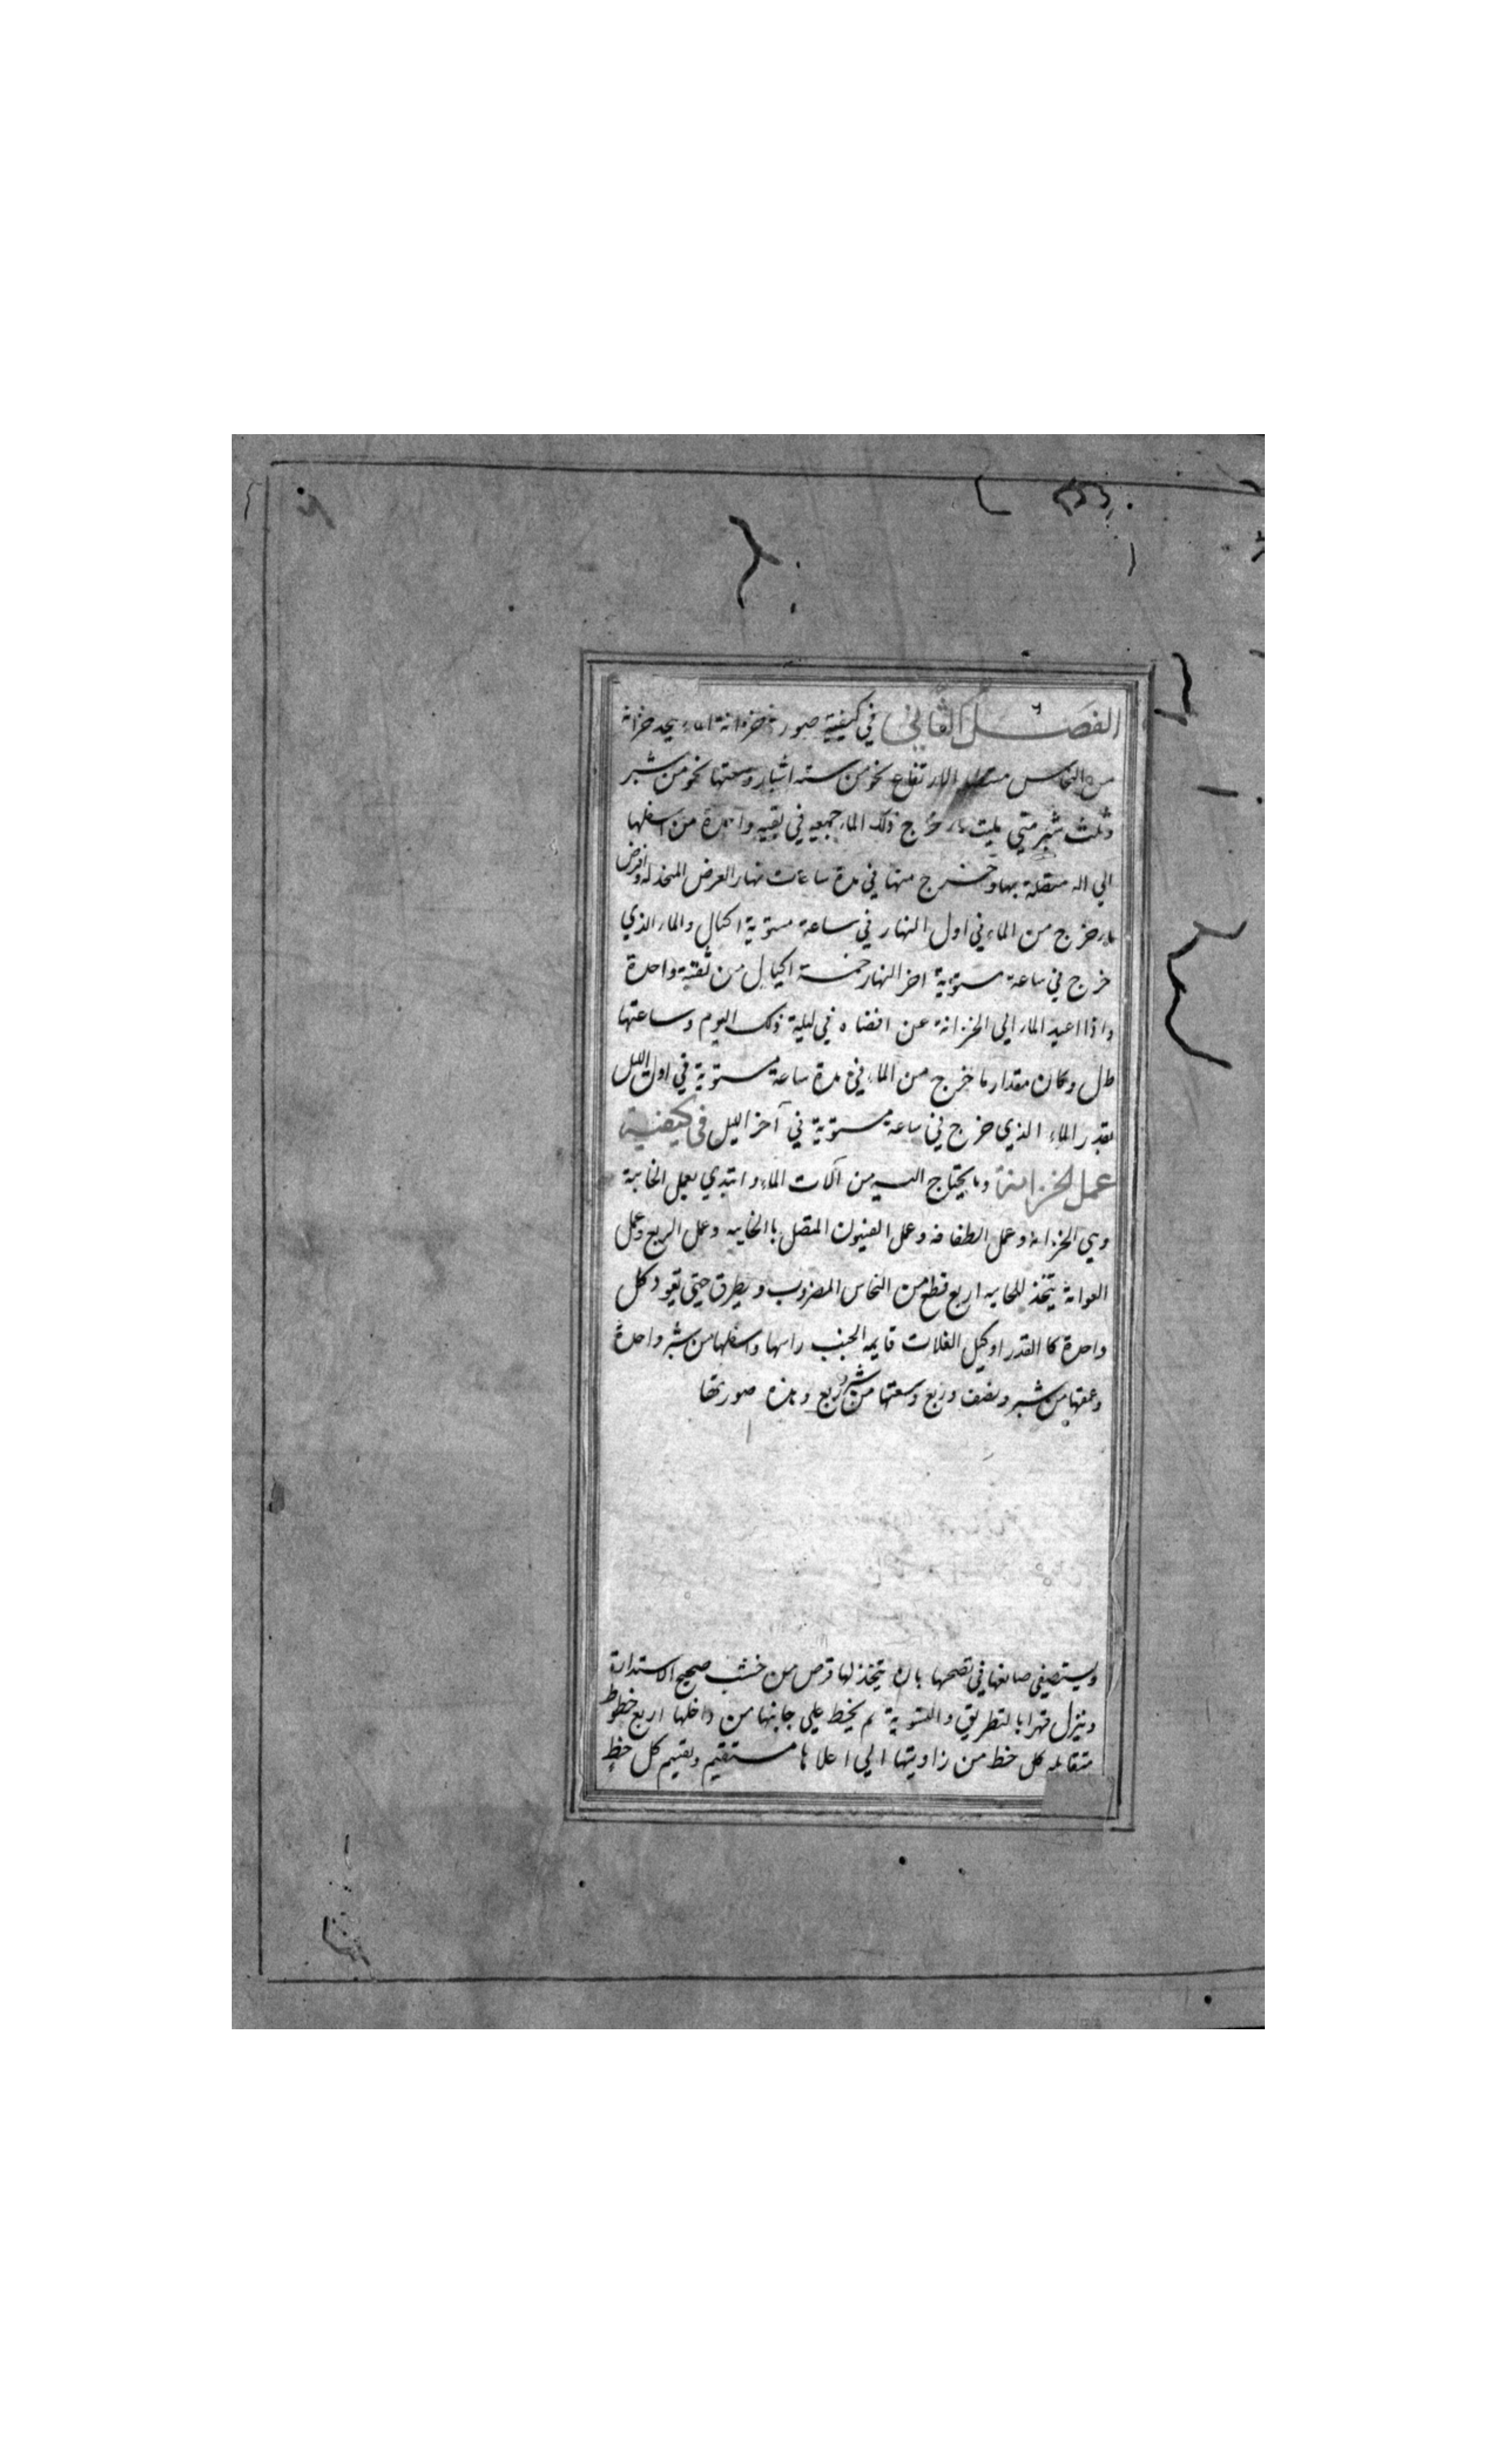 الفصل الثاني في كيفية صورة خزانة الماء يتخذ خزانة
من النحاس الارتفاع نحو من ستة اشبار وسعتها نحو من شبر
وثلث شبر متي مليت ماء خرج ذلك الماء جميعه في ثقبه واحدة من اسفلها
الي اله متصلة بها وخرج منها في مدة ساعات نهار العرض المتخذ له وفرض
ما خرج من الماء في اول النهار في ساعة مستوية اكيال والماء الذي
خرج في ساعة مستوية اخر النهار خمسة اكيال من ثقبة واحدة
واذا اعيد الماء الي الخزانة عن في ليلة ذلك اليوم وساعتها
طل وكان مقدار ما خرج من الماء في مدة ساعة مستوية في اول الليل
بقدر الماء الذي خرج في ساعة مستوية في آخر الليل في كيفية
عمل الخزانة وما يحتاج اليه من آلات الماء وابتدي بعمل الخابية
وهي الخزانة وعمل الطفافه وعمل المتصل با الخابيه وعمل الربع وعمل
العوامة يتخذ للخابيه اربع قطع من النحاس المضروب ويطرق حتي تعود كل
واحدة كا القدر او كيل الغلات قايمه الجنب راسها واسفلها من شبر واحدة
وعمقها من شبر ونصف وربع وسعتها من شبر وربع وهذه صورتها
ويستصفي صانعها في تصحها بان يتخذ لها قرص من خشب صحيح الاستدارة
وينزل قهرا بالتطريق والتسوية ثم يخيط علي جانبها من داخلها اربع خطوط
متقابله كل خط من زاويتها الي اعلاها مستقيم ونقيم كل خط